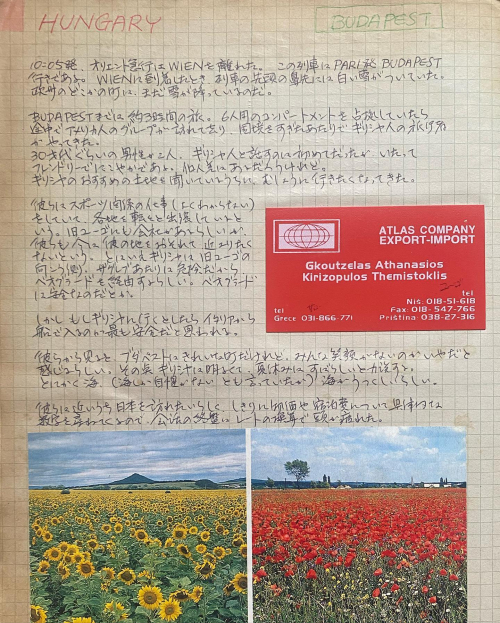 HUNGARY
BUDAPEST
10:05発、オリエント急行はWIENを離れた。この列車はPARI発BUDAPEST
行きである。WIENに到着したとき、列車の先頭の鼻先には白い雪がついていた。
欧州のどこかの町に、まだ雪が降っているのだ。
BUDAPESTまでは約3時間の旅。6人用のコンパートメントを占拠していたら
途中でアメリカ人のグループが訪れており、国境をすぎたあたりでギリシャ人の旅行者
がやってきた。
30才代ぐらいの男性が二人、ギリシャ人と話すのは初めてだったが いたって
フレンドリーでにこやかである。
ギリシャのおすすめの土地を聞いているうちに、むしょうに行きたくなってきた。
彼らはスポーツ関係の仕事(よくわからない)
をしていて、各地を転々と出張していると
いう。旧ユーゴにも会社があるらしいが、
彼らも今は
ないという。とはいえギリシャは旧ユーゴの
向こう側、ザグレブあたりは危険だから
ベオグラードを経由すればらしい。ベオグラード
は安全なのだとか。
しかしもしギリシャに行くとしたらイタリアから
船で入るのが最も安全だと思われる。
彼らから見ると、ブダペストはきれいな町だけれど、みんな笑顔がないのがいやだと
感じるらしい。その点ギリシャは明るくて、夏休みにすばらしいと力説する。
とにかく海、(海しか自慢がないとも言っていたが)海がうつくしいらしい。
彼らは近いうち日本を訪れたいらしく、しきりに物価や宿泊費について具体的な
数字を尋ねてくるので、会話の終盤はレートの換算で頭が疲れた。
ATLAS COMPANY
EXPORT-IMPORT
Gkoutzelas Athanasios
Kirizopulos Themistoklis
tel
Grece 031-866-771
tel
Nis: 018-51-618
Fax: 018-547-766
Pristina: 038-27-316